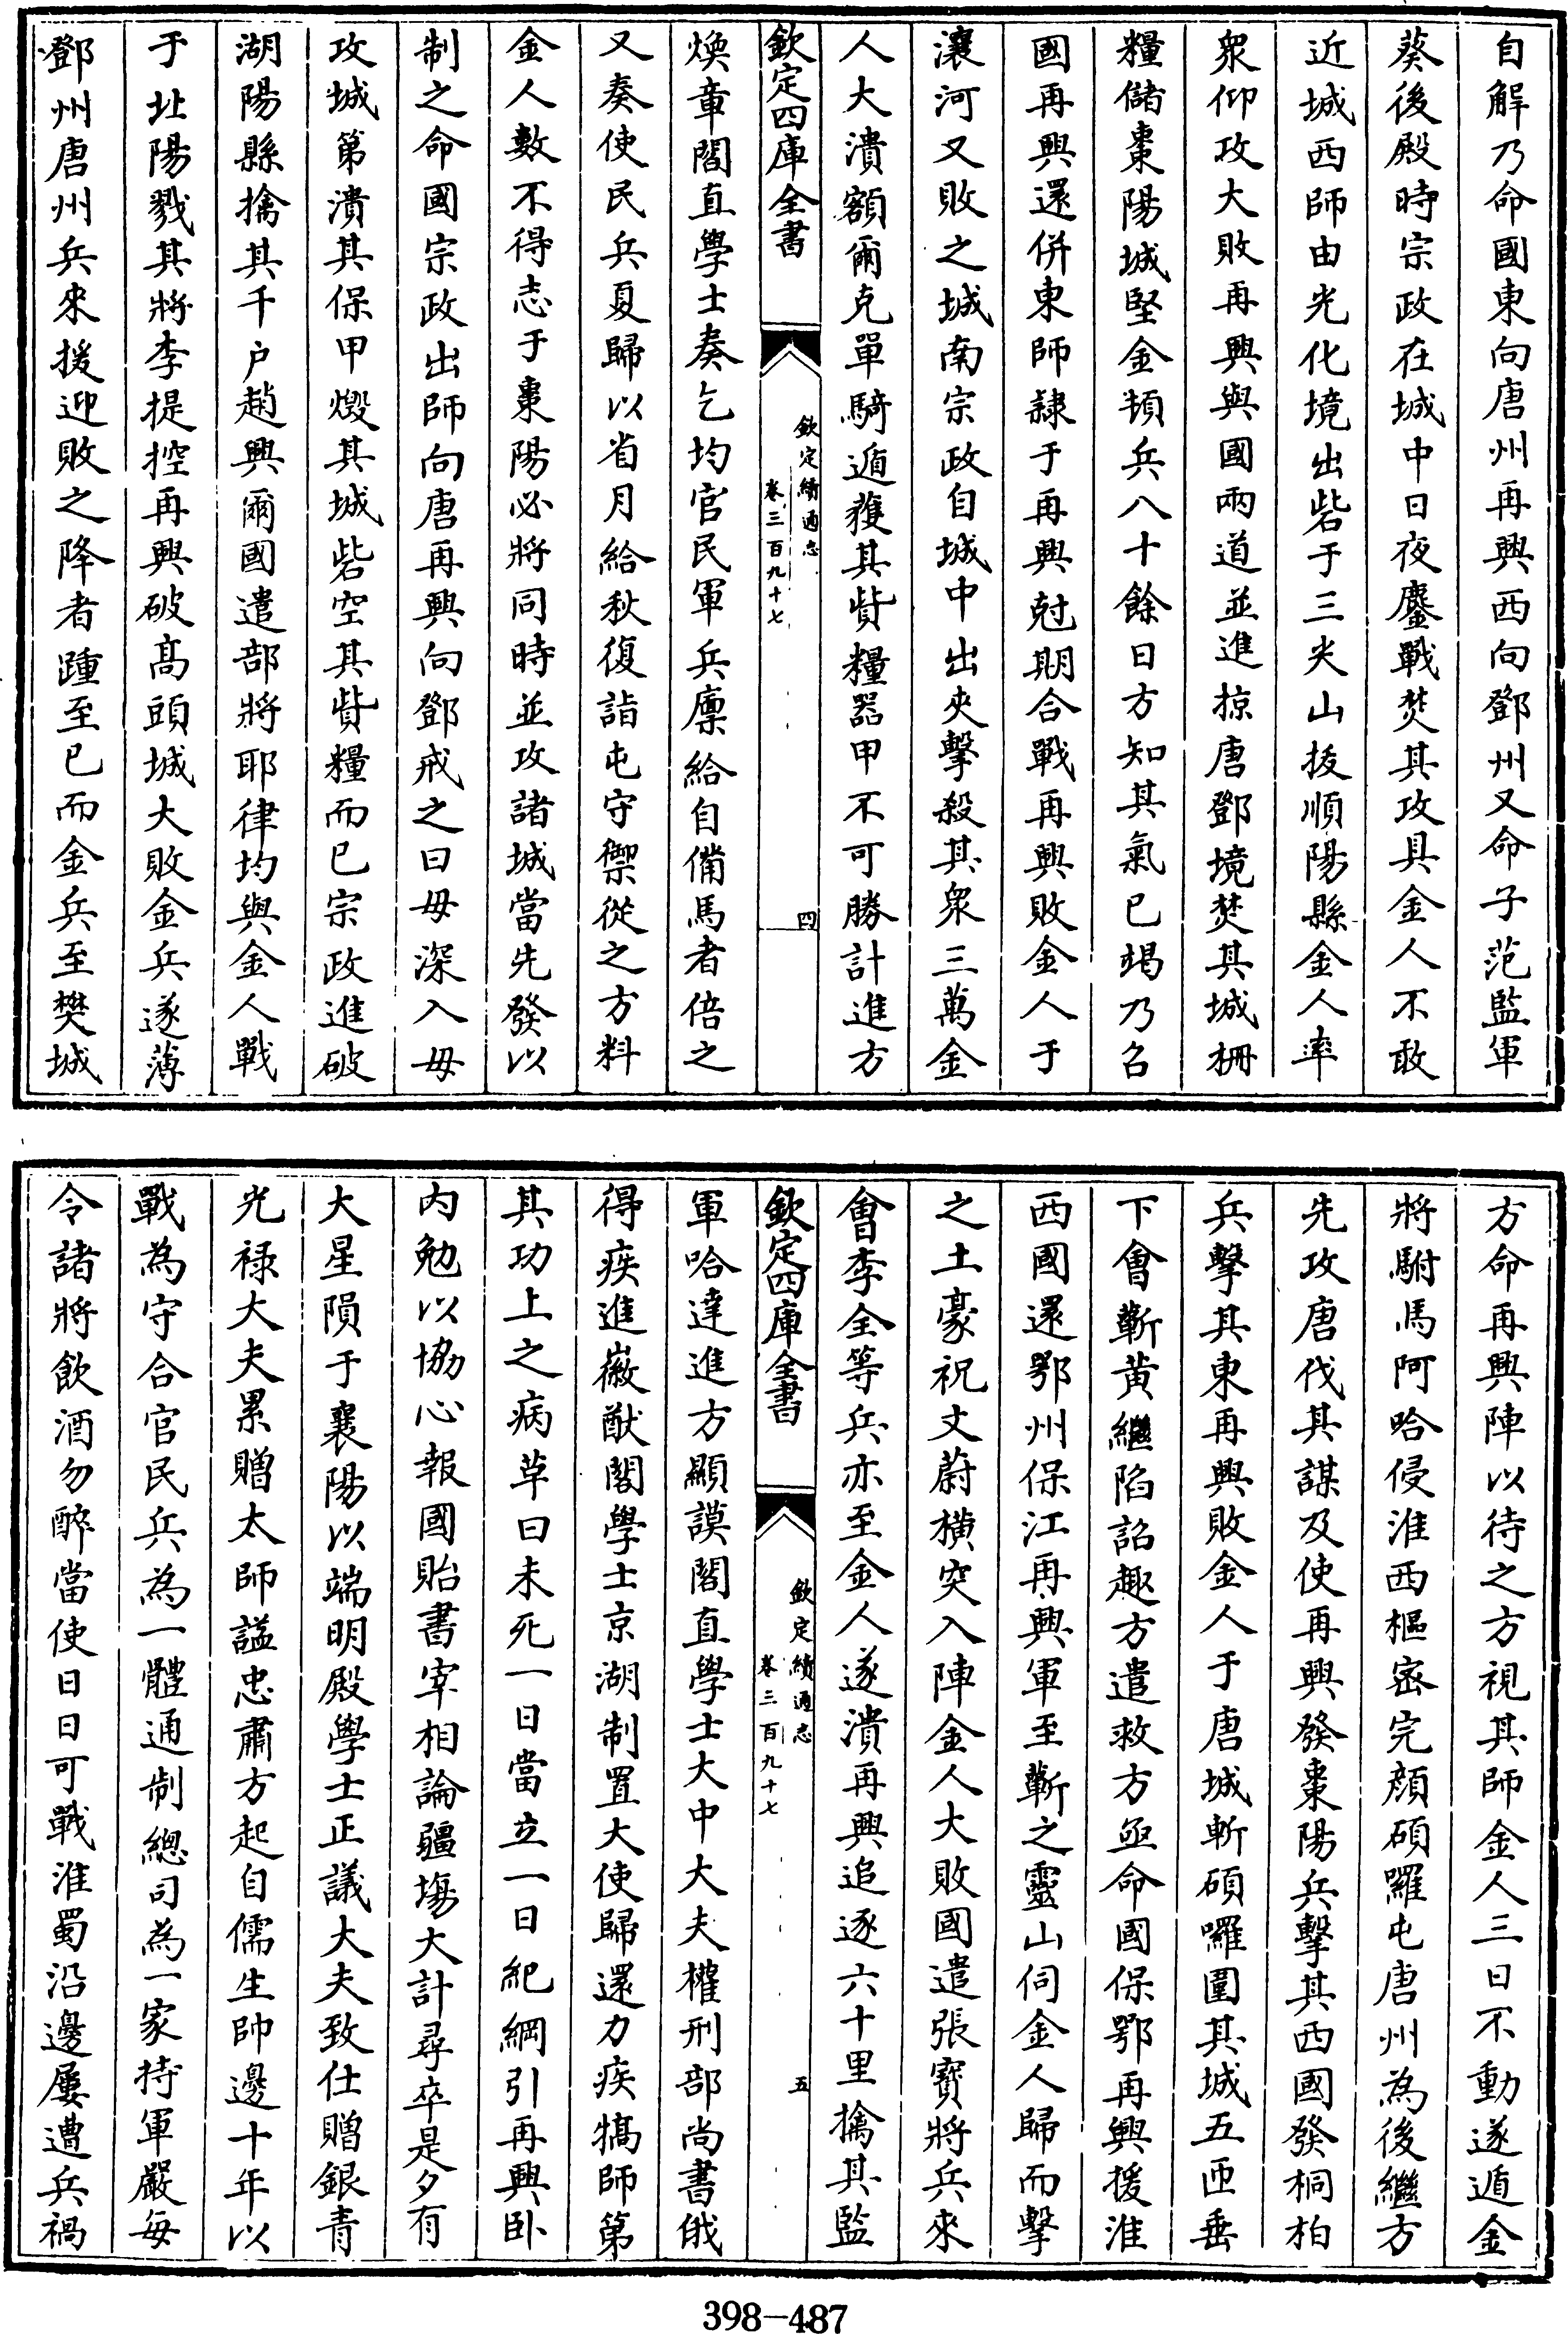 自解乃命國東向唐州再興西向鄧州又命子范監軍
葵後殿時宗政在城中日夜鏖戰焚其攻具金人不敢
近城西師由光化境出砦于三尖山拔順陽縣金人率
衆仰攻大敗再興與國兩道並進掠唐鄧境焚其城柵
糧儲棗陽城堅金頓兵八十餘日方知其氣已竭乃召
國再興還併東師隷于再興尅期合戰再興敗金人于
瀼河又敗之城南宗政自城中出夾擊殺其衆三萬金
人大潰額爾克單騎遁獲其貲糧器甲不可勝計進方
欽定四庫全書
欽定續通志
卷三百九十七
四
煥章閣直學士奏乞均官民軍兵廪給自備馬者倍之
又奏使民兵夏歸以省月給秋復詣屯守禦從之方料
金人數不得志于棗陽必將同時並攻諸城當先發以
制之命國宗政出師向唐再興向鄧戒之曰毋深入毋
攻城第潰其保甲燬其城砦空其貲糧而已宗政進破
湖陽縣擒其千户趙興爾國遣部將耶律均與金人戰
于北陽戮其將李提控再興破髙頭城大敗金兵遂薄
鄧州唐州兵來援迎敗之降者踵至已而金兵至樊城
方命再興陣以待之方視其師金人三日不動遂遁金
將駙馬阿哈侵淮西樞密完顔碩囉屯唐州為後繼方
先攻唐伐其謀及使再興發棗陽兵擊其西國發桐柏
兵擊其東再興敗金人于唐城斬碩囉圍其城五匝垂
下會蘄黄繼陷詔趣方遣救方亟命國保鄂再興援淮
西國還鄂州保江再興軍至蘄之靈山伺金人歸而擊
之土豪祝文蔚横突入陣金人大敗國遣張寳將兵來
會李全等兵亦至金人遂潰再興追逐六十里擒其監
欽定四庫全書
欽定續通志
卷三百九十七
五
軍哈達進方顯謨閣直學士大中大夫權刑部尚書俄
得疾進徽猷閣學士京湖制置大使歸還力疾犒師第
其功上之病草曰未死一日當立一日紀綱引再興卧
内勉以協心報國貽書宰相論疆埸大計尋卒是夕有
大星隕于襄陽以端明殿學士正議大夫致仕贈銀青
光禄大夫累贈太師謚忠肅方起自儒生帥邊十年以
戰為守合官民兵為一體通制總司為一家持軍嚴每
令諸將飲酒勿醉當使日日可戰淮蜀沿邊屢遭兵禍
398-487